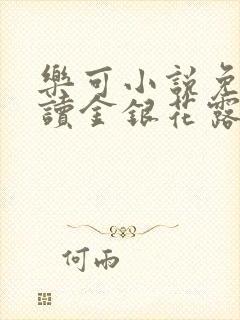 樂可小說免
讀金銀花露
何雨